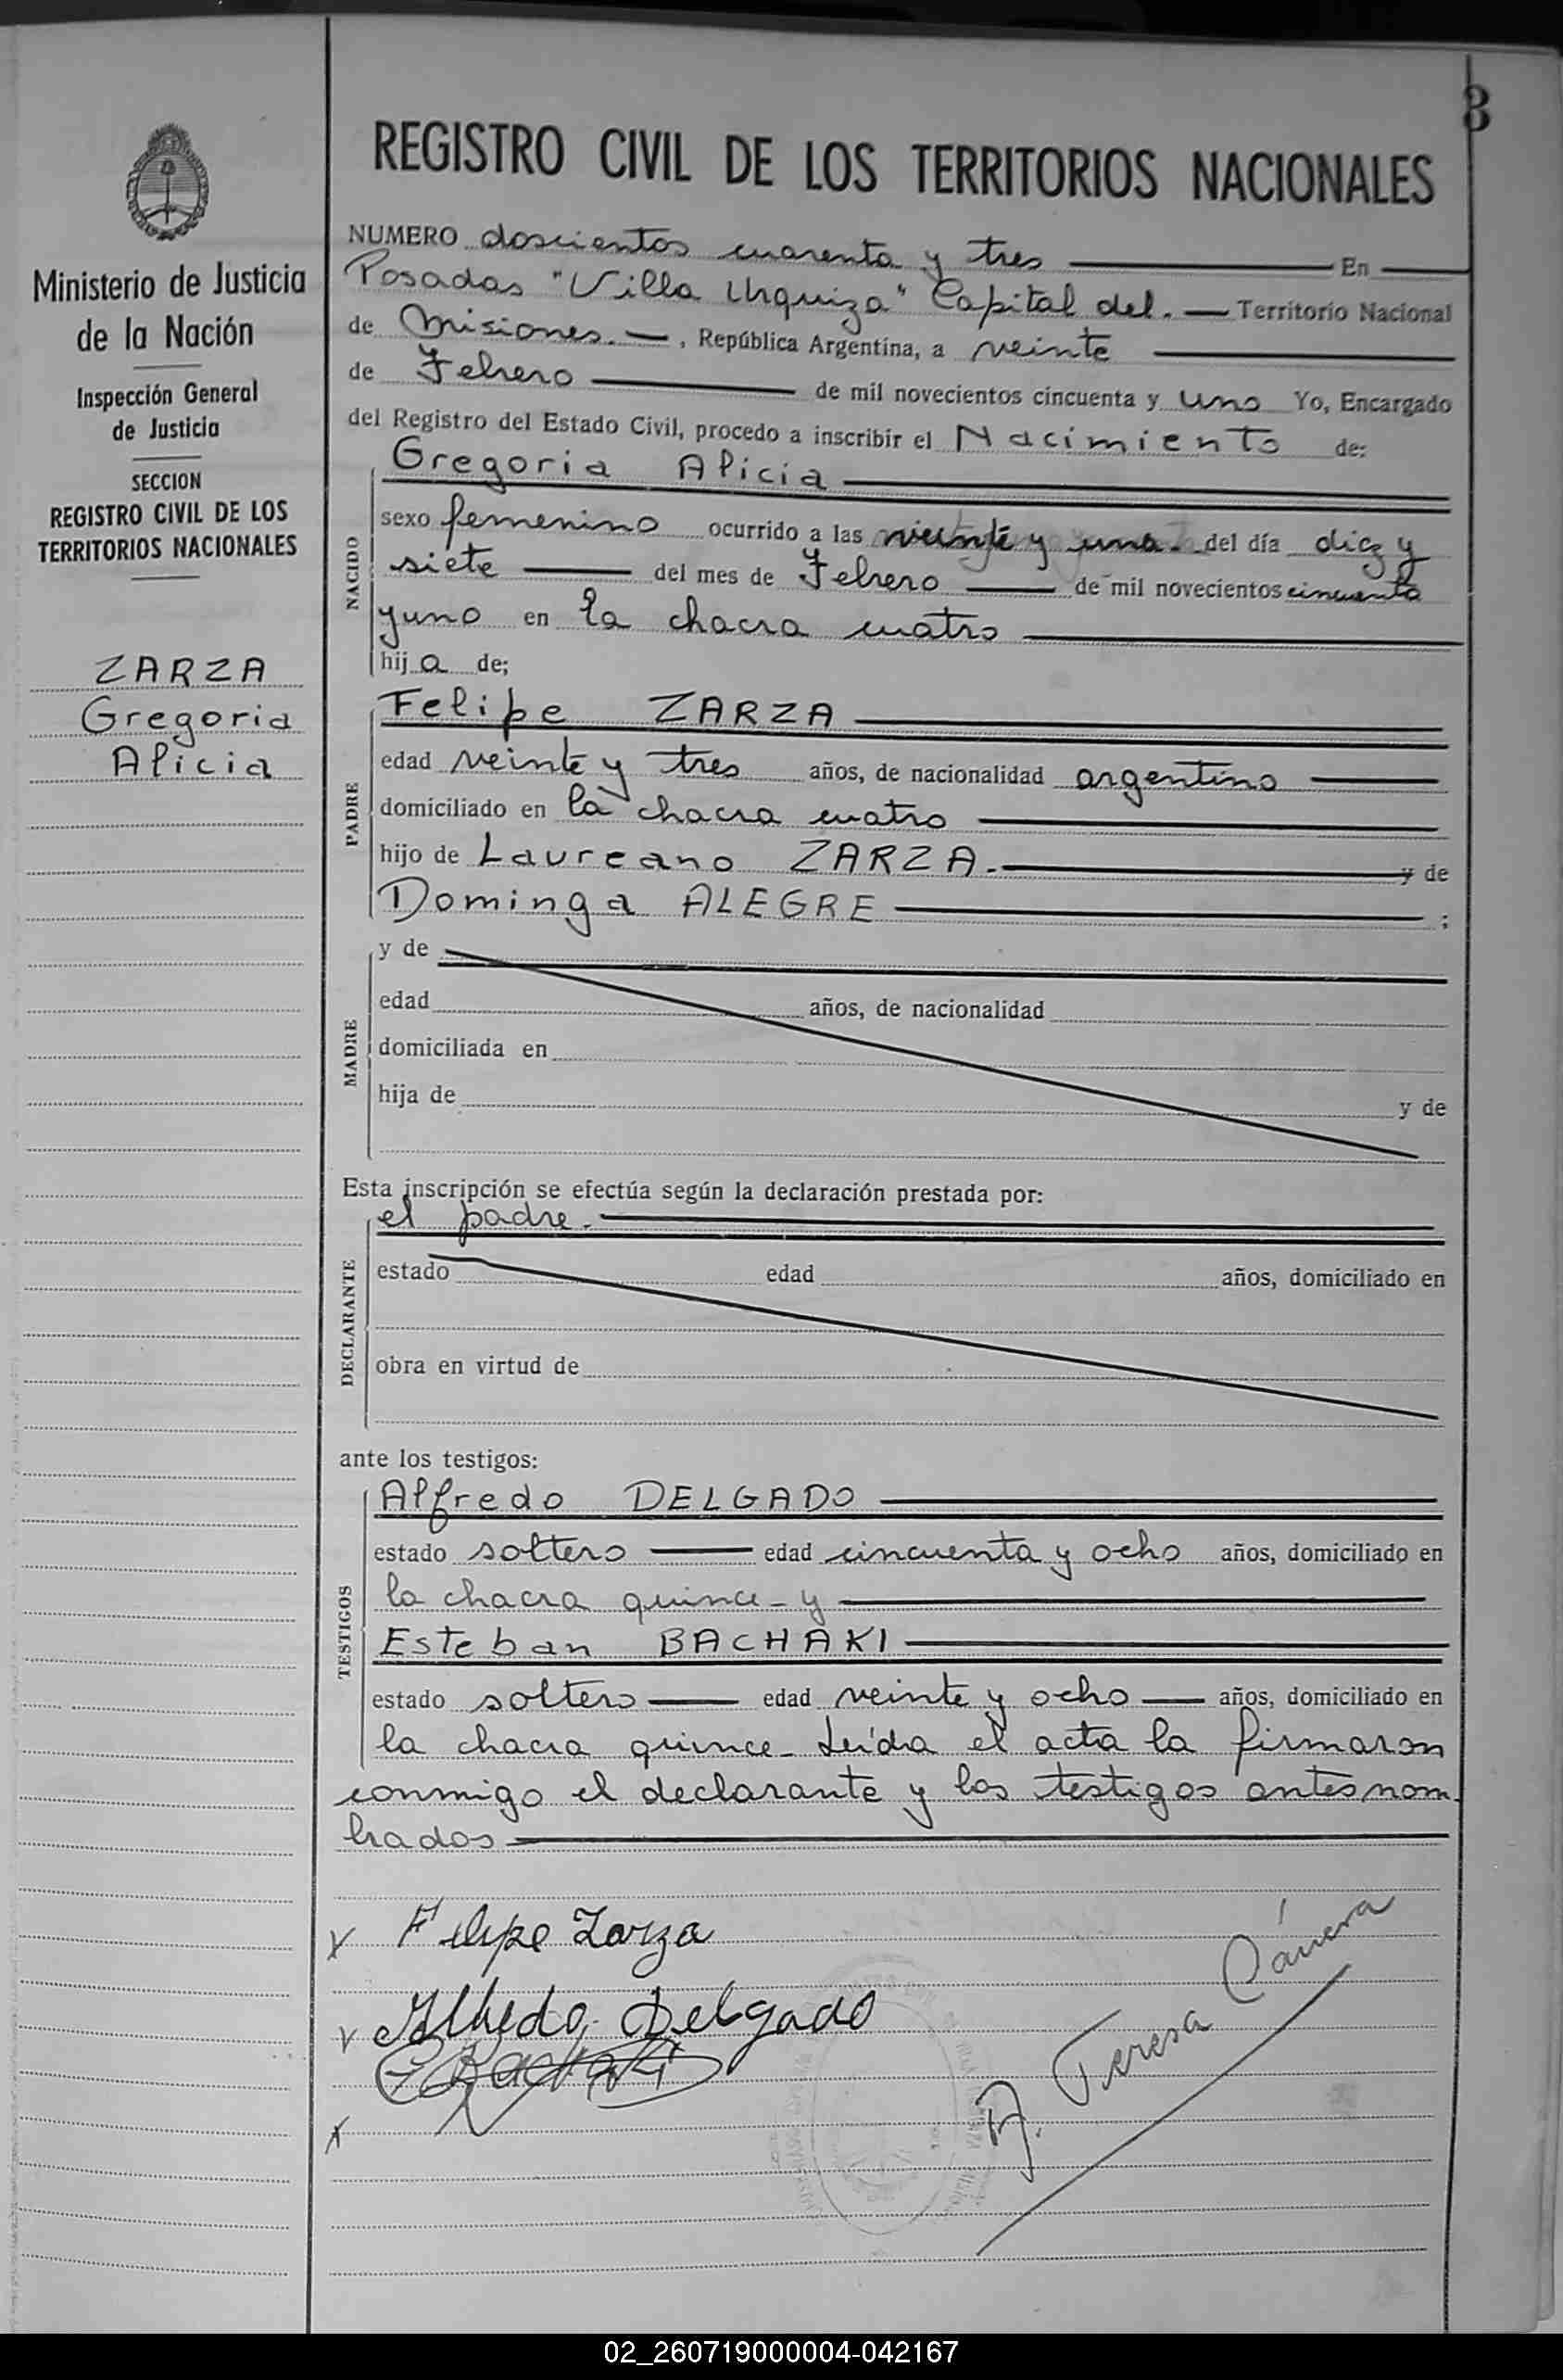 3
REGISTRO CIVIL DE LOS TERRITORIOS NACIONALES
Ministerio de Justicia
de la Nación
Inspección General
de Justicia
SECCION
REGISTRO CIVIL DE LOS
TERRITORIOS NACIONALES
ZARZA
Gregoria
Alicia
NUMERO doscientos cuarenta y tres En
Posadas "Villa Urquiza" Capital del. Territorio Nacional
de Misiones. , República Argentina, a veinte
de Febrero de mil novecientos cincuenta y uno Yo, Encargado
del Registro del Estado Civil, procedo a inscribir el Nacimiento de:
Gregoria Alicia
NACIDO
sexo femenino ocurrido a las veinte y una. del día diez y
siete del mes de Febrero de mil novecientos cincuenta
y uno en la chacra cuatro
hija de;
PADRE
Felipe ZARZA
edad veinte y tres años, de nacionalidad argentino
domiciliado en la chacra cuatro
hijo de Laureano ZARZA. y de
Dominga ALEGRE ;
MADRE
y de
edad años, de nacionalidad
domiciliada en
hija de y de
Esta inscripción se efectúa según la declaración prestada por:
el padre.
DECLARANTE
estado edad años, domiciliado en
obra en virtud de
ante los testigos:
TESTIGOS
Alfredo DELGADO
estado soltero edad cincuenta y ocho años, domiciliado en
la chacra quince - y
Esteban BACHAKI
estado soltero edad veinte y ocho años, domiciliado en
la chacra quince - Leída el acta la firmaron
conmigo el declarante y los testigos antes nom-
brados
Felipe Zarza
Alfredo Delgado
E Bachaki
A. Teresa Cánera
02_260719000004-042167